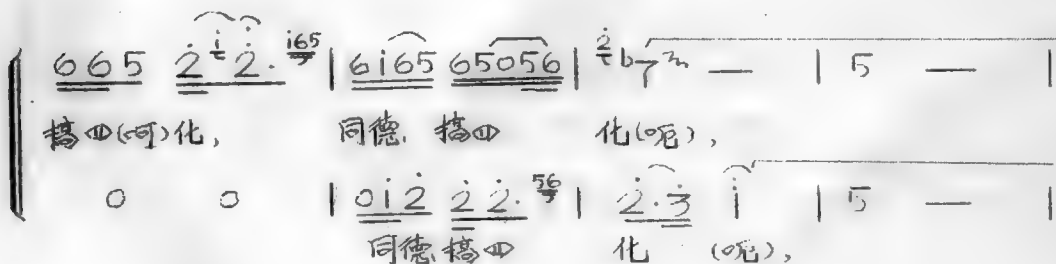 665 2̇ i 2̇. i65 | 6i65 65056 | 2̇ b7 — | 5 — |
搞四(呵)化, 同德 搞四 化(呃),
0 0 | 0i2̇ 2̇ 2̇. 56 | 2̇.3̇ i | 5 — |
同德 搞四 化 (呃),